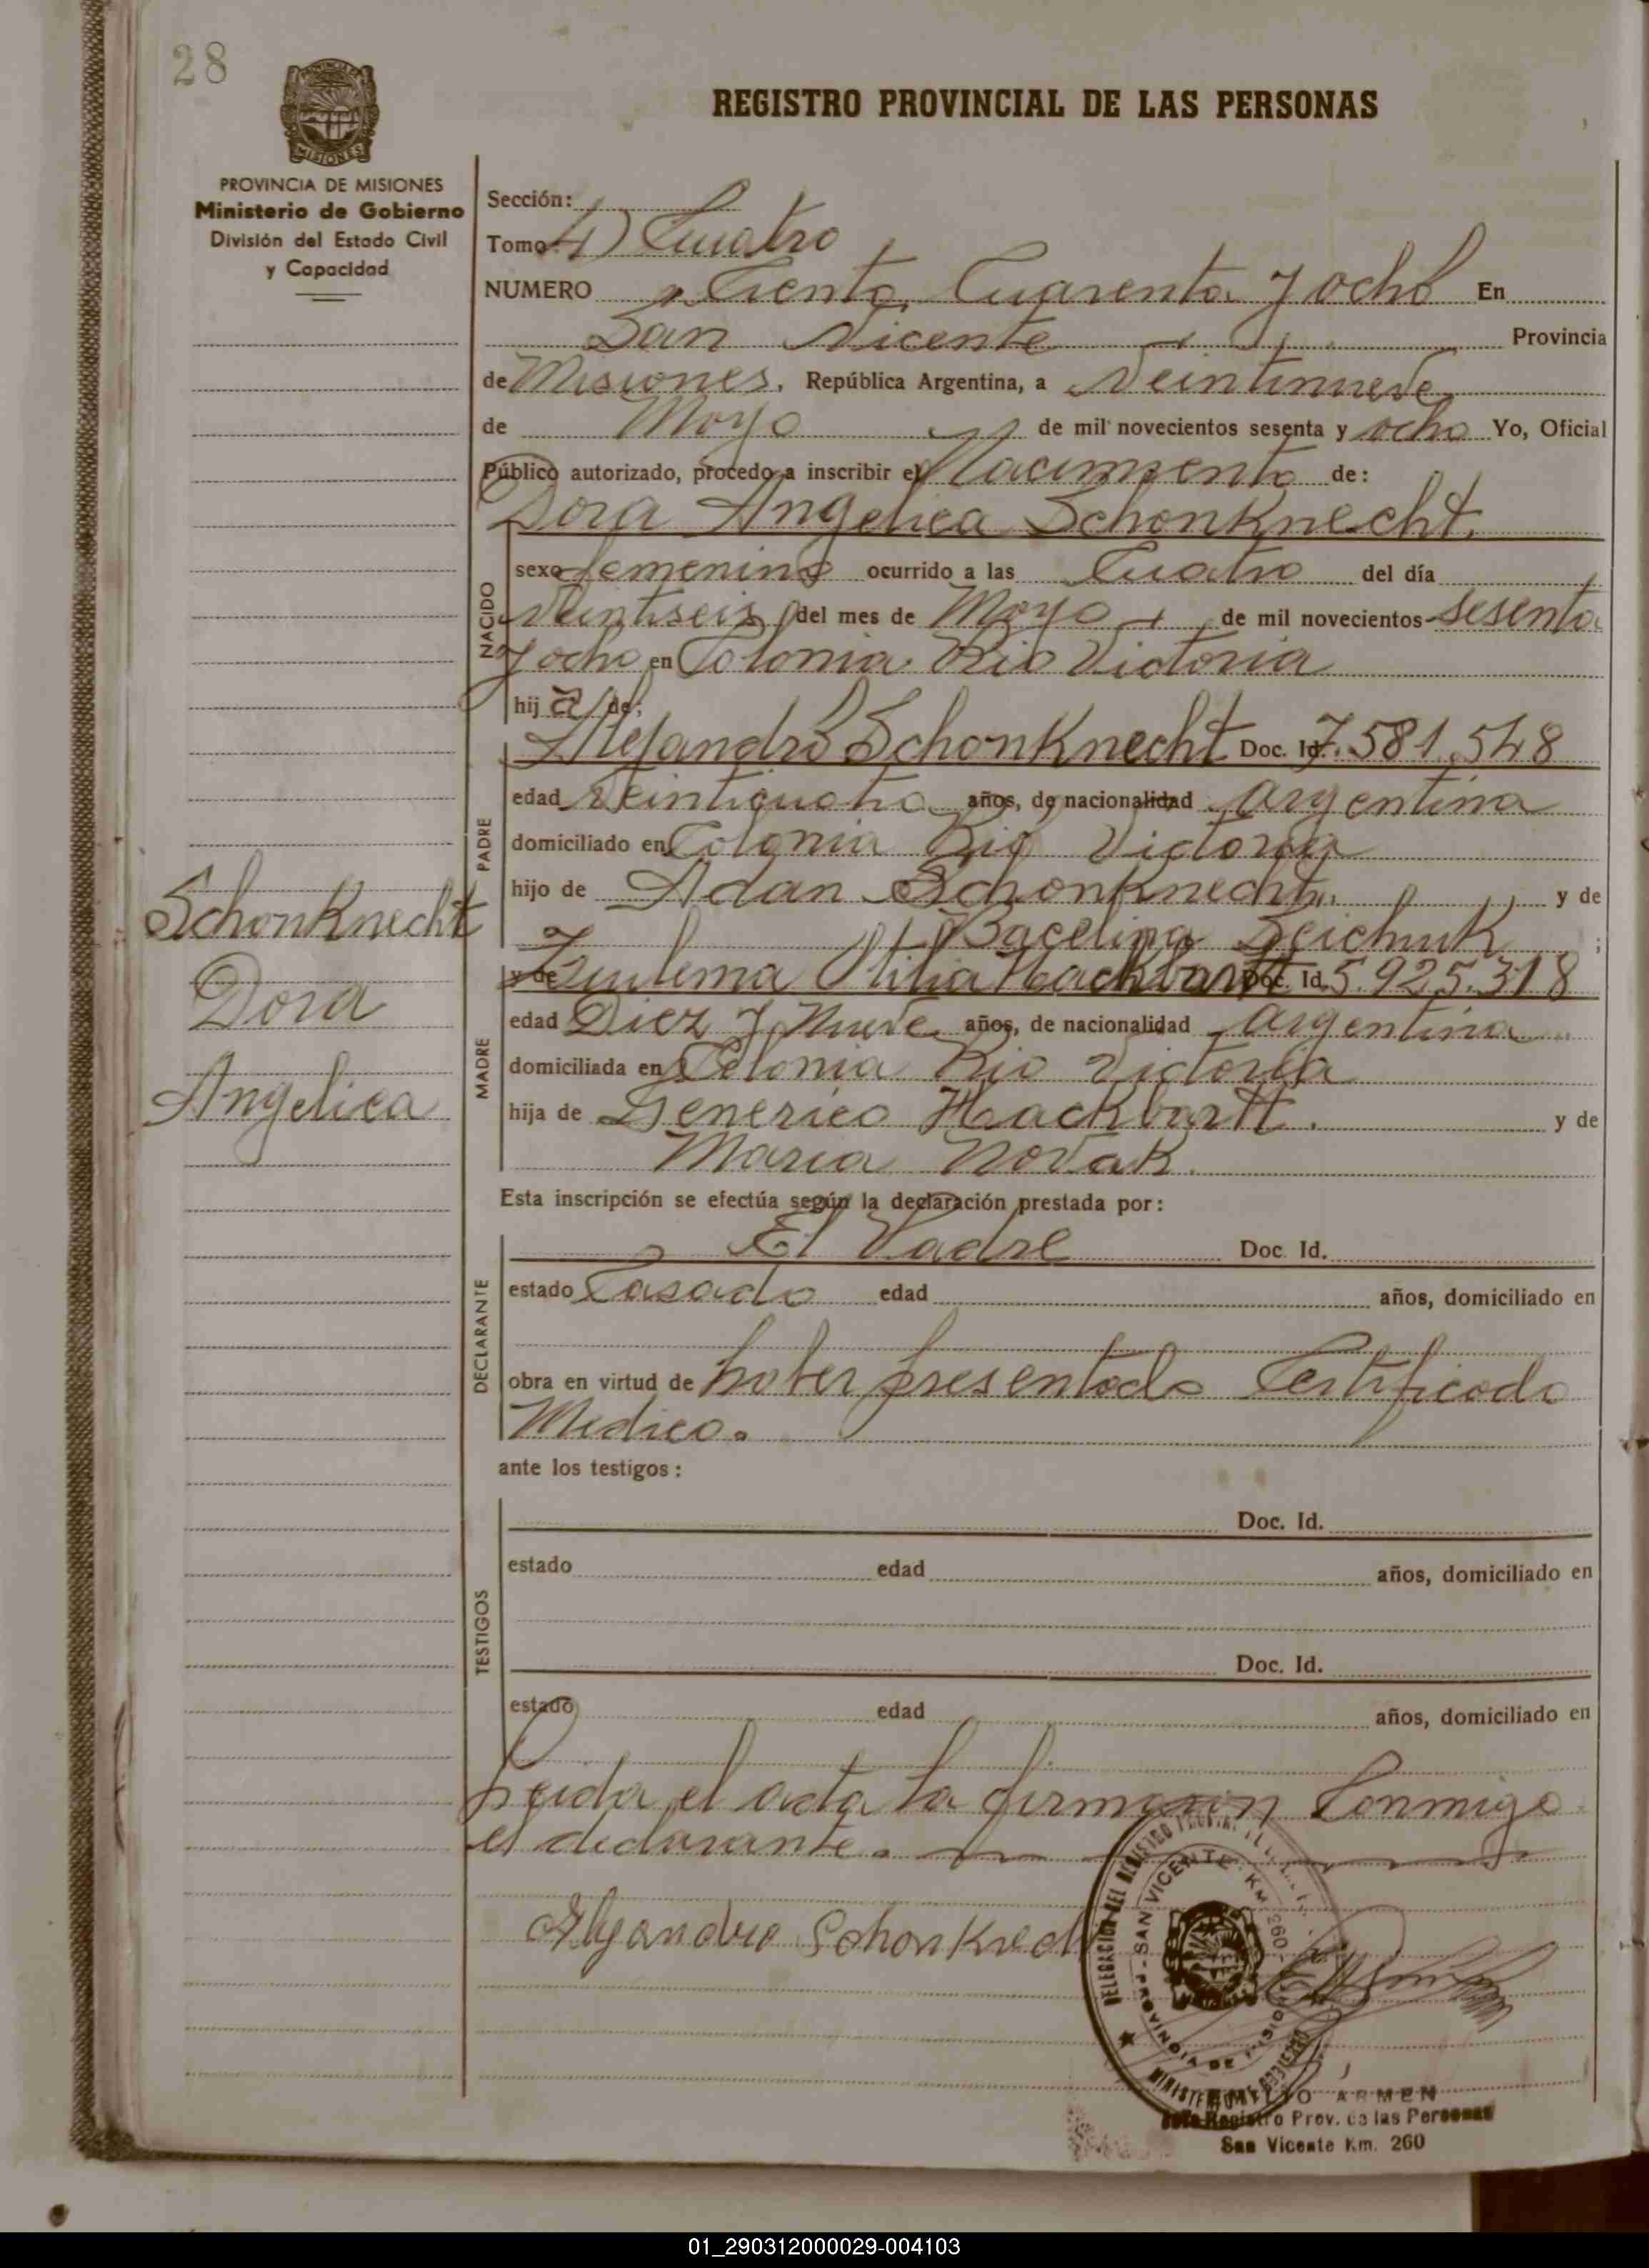 28
PROVINCIA DE MISIONES
Ministerio de Gobierno
División del Estado Civil
y Capacidad
REGISTRO PROVINCIAL DE LAS PERSONAS
Sección:
Tomo 4) Cuatro
NUMERO Ciento Cuarenta y ocho En
San Vicente Provincia
de Misiones, República Argentina, a Veintinueve
de Mayo de mil novecientos sesenta y ocho Yo, Oficial
Público autorizado, procedo a inscribir el Nacimiento de:
Dora Angelica Schonknecht.
NACIDO
sexo femenino ocurrido a las Cuatro del día
Veintiseis del mes de Mayo de mil novecientos sesenta
y ocho en Colonia Rio Victoria
hij a de:
PADRE
Alejandro Schonknecht Doc. Id. 7.581.548
edad Veinticuatro años, de nacionalidad argentina
domiciliado en Colonia Rio Victoria
hijo de Adan Schonknecht, y de
;
y de Zulema Otilia Hackbartt Doc. Id. 5.925.318
MADRE
edad Diez y Nueve años, de nacionalidad argentina
domiciliada en Colonia Rio Victoria
hija de Generico Haackbartt. y de
Maria Novak.
Schonknecht
Dora
Angelica
Esta inscripción se efectúa según la declaración prestada por:
DECLARANTE
El Padre Doc. Id.
estado Casado edad años, domiciliado en
obra en virtud de haber presentado Certificado
Medico.
ante los testigos:
TESTIGOS
Doc. Id.
estado edad años, domiciliado en
Doc. Id.
estado edad años, domiciliado en
Leida el acta la firmaron Conmigo
el declarante.
Alejandro Schonknech
DELEGACION DEL REGISTRO
SAN VICENTE KM 260
PROVINCIA DE MISIONES
ARMEN
Registro Prov. de las Personas
San Vicente Km. 260
01_290312000029-004103